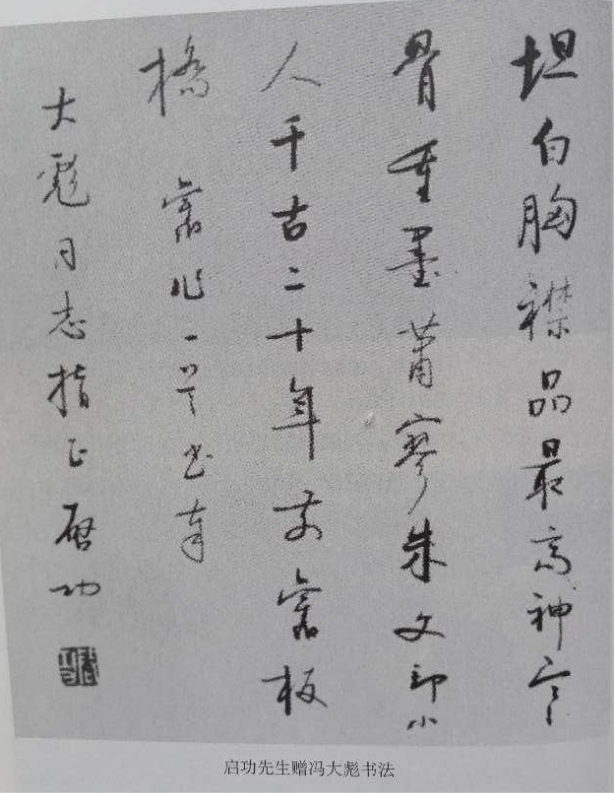 坦白胸襟品最高神寒
骨重墨萧寥朱文印小
人千古二十年前舊板
橋 舊作一首书奉
大彪同志指正 启功
启功先生赠冯大彪书法